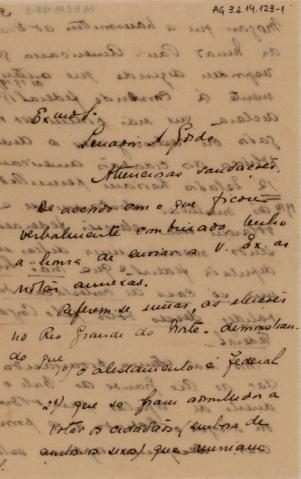 AG 3.2.14.123-1
Exmo. Sr.
Senador A. Gordo
Atenciosas saudações.
De accordo com o que ficou
verbalmente combinado, tenho
a honra de enviar a V. Ex. as
notas annexas.
Referem-se umas, ás eleições
no Rio Grande do Norte, demonstran-
do que
1º) o alistamento é federal
2º) que se foram admittidos a
votar os cidadãos (embora de
ambos os sexos) que reuniam